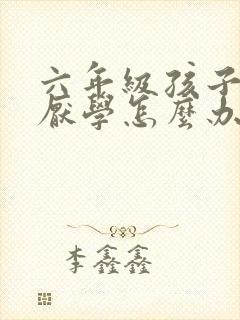 六年級孩子
厭學怎麼办
李鑫鑫